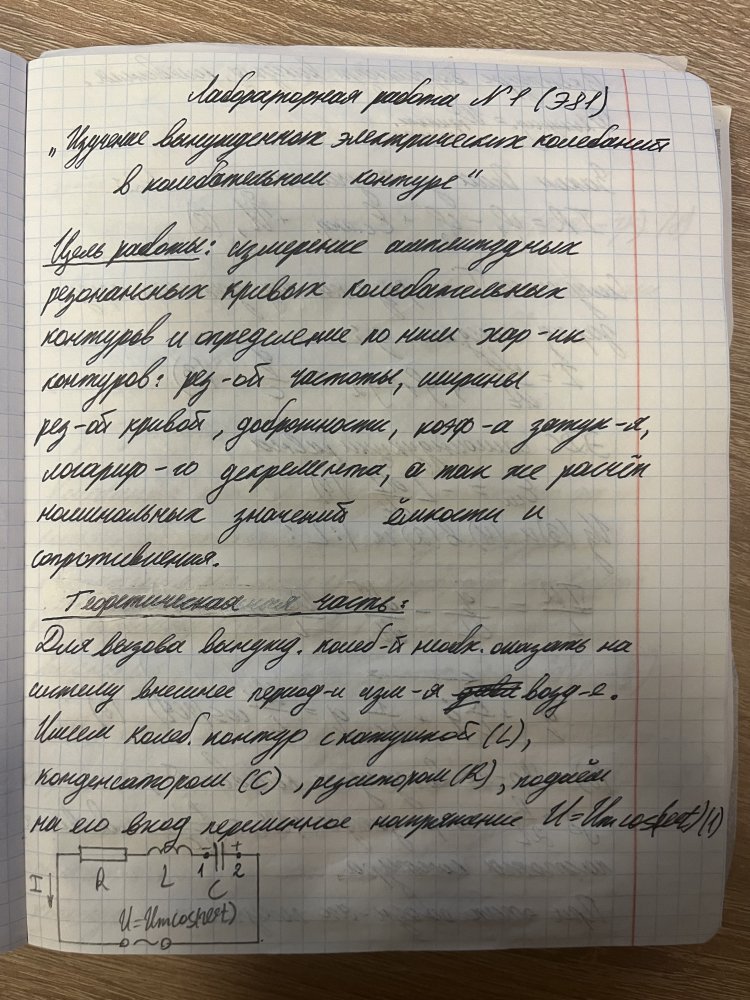 Лабораторная работа №1 (Э81)
„Изучение вынужденных электрических колебаний
в колебательном контуре"
Цель работы: измерение амплитудных
резонансных кривых колебательных
контуров и определение по ним хар-ик
контуров: рез-ой частоты, ширины
рез-ой кривой, добротности, коэф-а затух-я,
логариф-го декремента, а так же расчёт
номинальных значений ёмкости и
сопротивления.
Теоретическая часть:
Для вызова вынужд. колеб-й необх. оказать на
систему внешнее период-и изм-я возд-е.
Имеем колеб. контур с катушкой (L),
конденсатором (C), резистором (R), подаём
на его вход переменное напряжение U=Umcos(ωt)(1)
I R L 1 - + 2
C
U=Umcos(ωt)
~